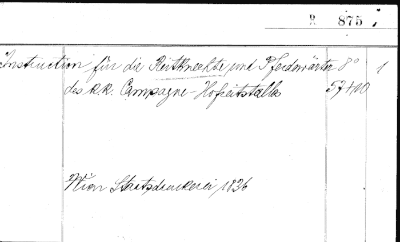 2 875
Instruction für die Reitknechte und Pferdwärter 8° 1
des k.k. Campagne-Hofreitstalls 57400
Wien Staatsdruckerei 1836